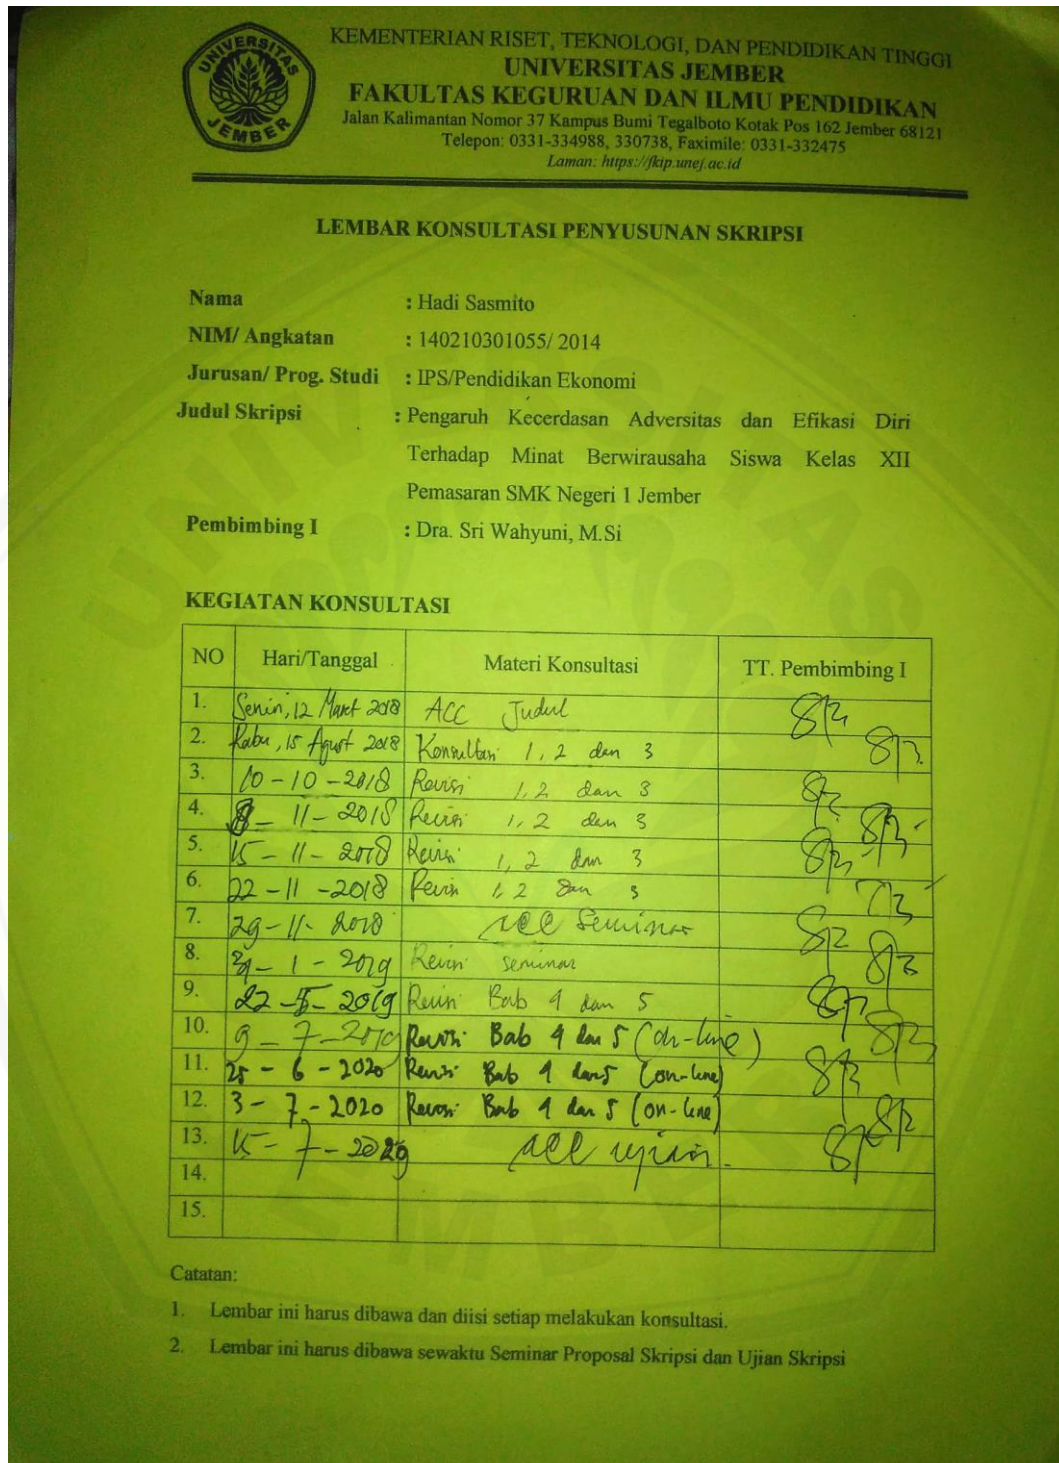 UNIVERSITAS
JEMBER
KEMENTERIAN RISET, TEKNOLOGI, DAN PENDIDIKAN TINGGI
UNIVERSITAS JEMBER
FAKULTAS KEGURUAN DAN ILMU PENDIDIKAN
Jalan Kalimantan Nomor 37 Kampus Bumi Tegalboto Kotak Pos 162 Jember 68121
Telepon: 0331-334988, 330738, Faximile: 0331-332475
Laman: https://fkip.unej.ac.id
LEMBAR KONSULTASI PENYUSUNAN SKRIPSI
Nama : Hadi Sasmito
NIM/ Angkatan : 140210301055/ 2014
Jurusan/ Prog. Studi : IPS/Pendidikan Ekonomi
Judul Skripsi : Pengaruh Kecerdasan Adversitas dan Efikasi Diri
Terhadap Minat Berwirausaha Siswa Kelas XII
Pemasaran SMK Negeri 1 Jember
Pembimbing I : Dra. Sri Wahyuni, M.Si
KEGIATAN KONSULTASI
NO Hari/Tanggal Materi Konsultasi TT. Pembimbing I
1. Senin, 12 Maret 2018 ACC Judul
2. Rabu, 15 Agust 2018 Konsultasi 1, 2 dan 3
3. 10-10-2018 Revisi 1, 2 dan 3
4. 8-11-2018 Revisi 1, 2 dan 3
5. 15-11-2018 Revisi 1, 2 dan 3
6. 22-11-2018 Revisi 1, 2 dan 3
7. 29-11-2018 ACC Seminar
8. 1-2019 Revisi seminar
9. 22-5-2019 Revisi Bab 4 dan 5
10. 9-7-2019 Revisi Bab 4 dan 5 (on-line)
11. 25-6-2020 Revisi Bab 4 dan 5 (on-line)
12. 3-7-2020 Revisi Bab 4 dan 5 (on-line)
13. 15-7-2020 ACC ujian.
14.
15.
Catatan:
1. Lembar ini harus dibawa dan diisi setiap melakukan konsultasi.
2. Lembar ini harus dibawa sewaktu Seminar Proposal Skripsi dan Ujian Skripsi